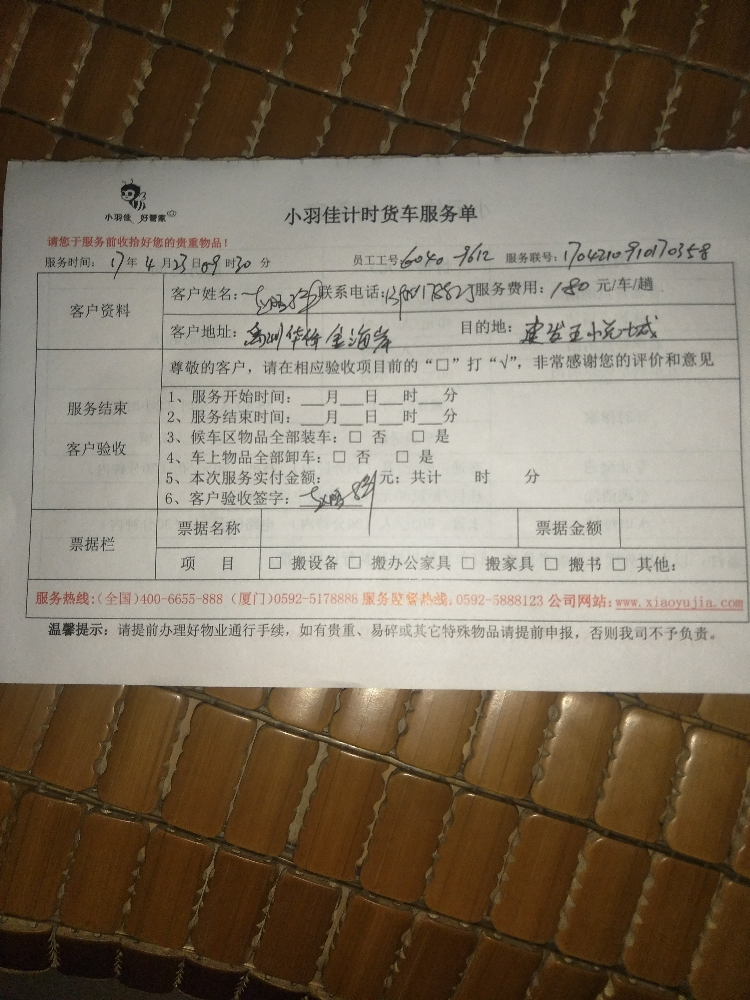 小羽佳 好管家
小羽佳计时货车服务单
请您于服务前收拾好您的贵重物品！
服务时间：17年4月23日09时30分 员工工号6040 9612 服务联号：1704210910170358
客户资料
客户姓名： 联系电话： 服务费用：180元/车/趟
客户地址： 金海岸 目的地：
尊敬的客户，请在相应验收项目前的“□”打“√”，非常感谢您的评价和意见
服务结束
客户验收
1、服务开始时间：___月___日___时___分
2、服务结束时间：___月___日___时___分
3、候车区物品全部装车：□ 否 □ 是
4、车上物品全部卸车：□ 否 □ 是
5、本次服务实付金额： 元；共计 时 分
6、客户验收签字：
票据栏
票据名称 票据金额
项 目 □ 搬设备 □ 搬办公家具 □ 搬家具 □ 搬书 □ 其他：
服务热线：(全国)400-6655-888 (厦门)0592-5178888 服务监督热线：0592-5888123 公司网站：www.xiaoyujia.com
温馨提示：请提前办理好物业通行手续，如有贵重、易碎或其它特殊物品请提前申报，否则我司不予负责。